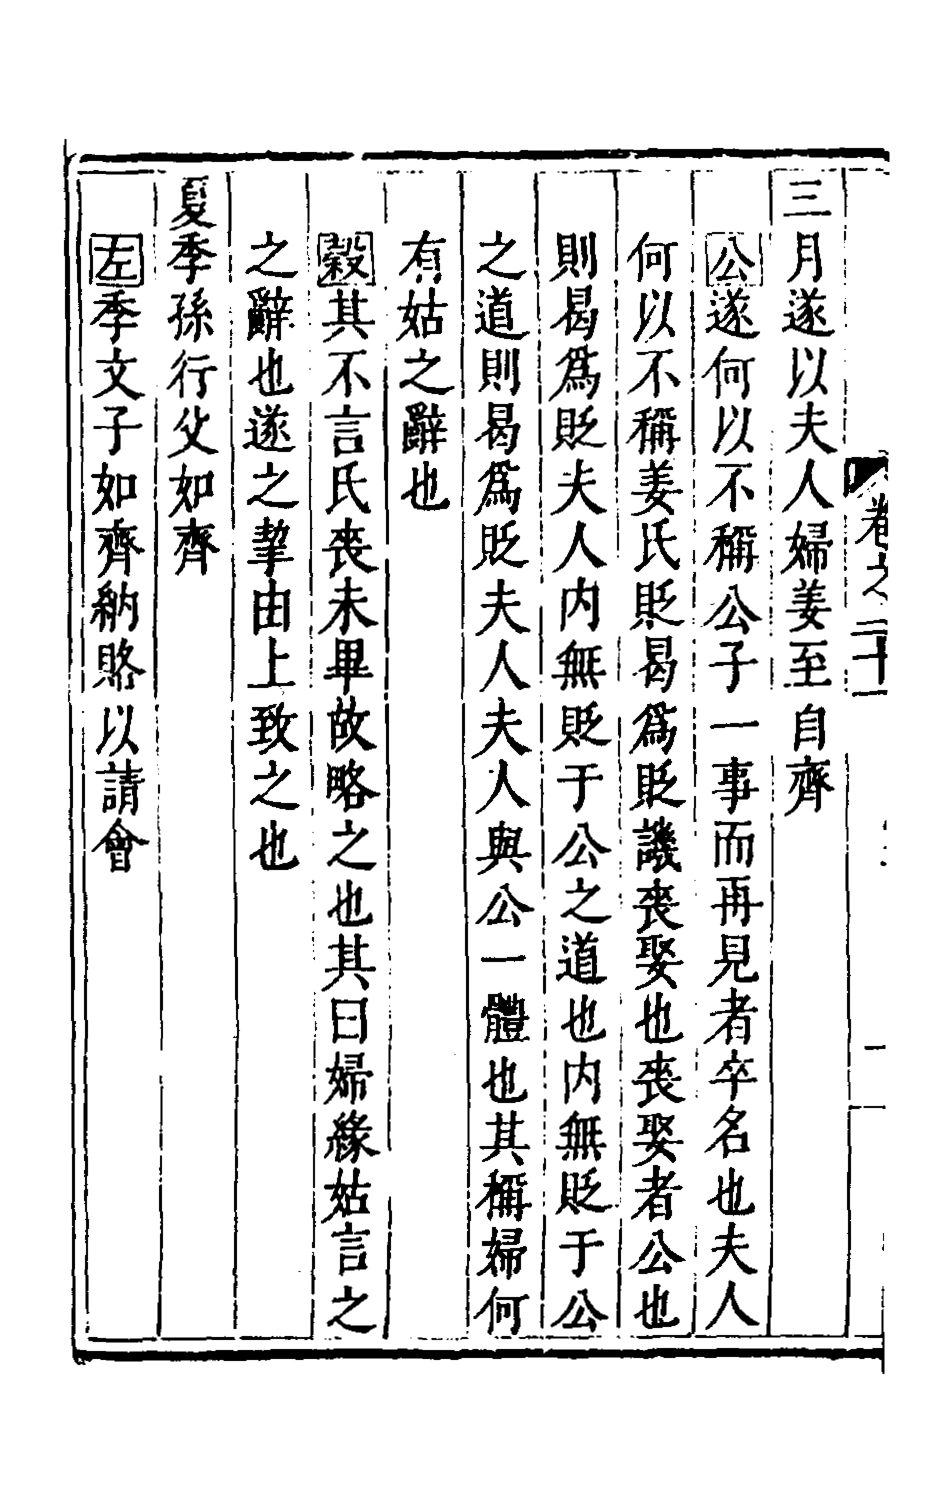 卷之二十
三月遂以夫人婦姜至自齊
公遂何以不稱公子一事而再見者卒名也夫人
何以不稱姜氏貶曷爲貶譏喪娶也喪娶者公也
則曷爲貶夫人内無貶于公之道也内無貶于公
之道則曷爲貶夫人夫人與公一體也其稱婦何
有姑之辭也
穀其不言氏喪未畢故略之也其曰婦緣姑言之
之辭也遂之挈由上致之也
夏季孫行父如齊
左季文子如齊納賂以請會